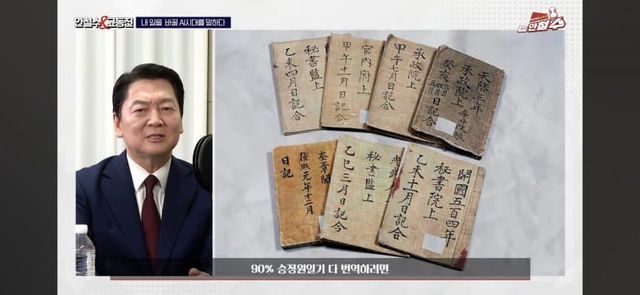 안철수&고동진 내 일을 바꿀 AI시대를 말하다
안철수
乙未四月日記合
秘書監上
甲午十一月日記合
宮内府上
甲午七月日記合
承政院上
天啓三年
承政院上
癸亥
日記合
奎章閣
隆熙元年十二月
日記
乙巳三月日記合
秘書監上
乙未十一月日記合
秘書院上
開國五百四年
90% 승정원일기 다 번역하려면